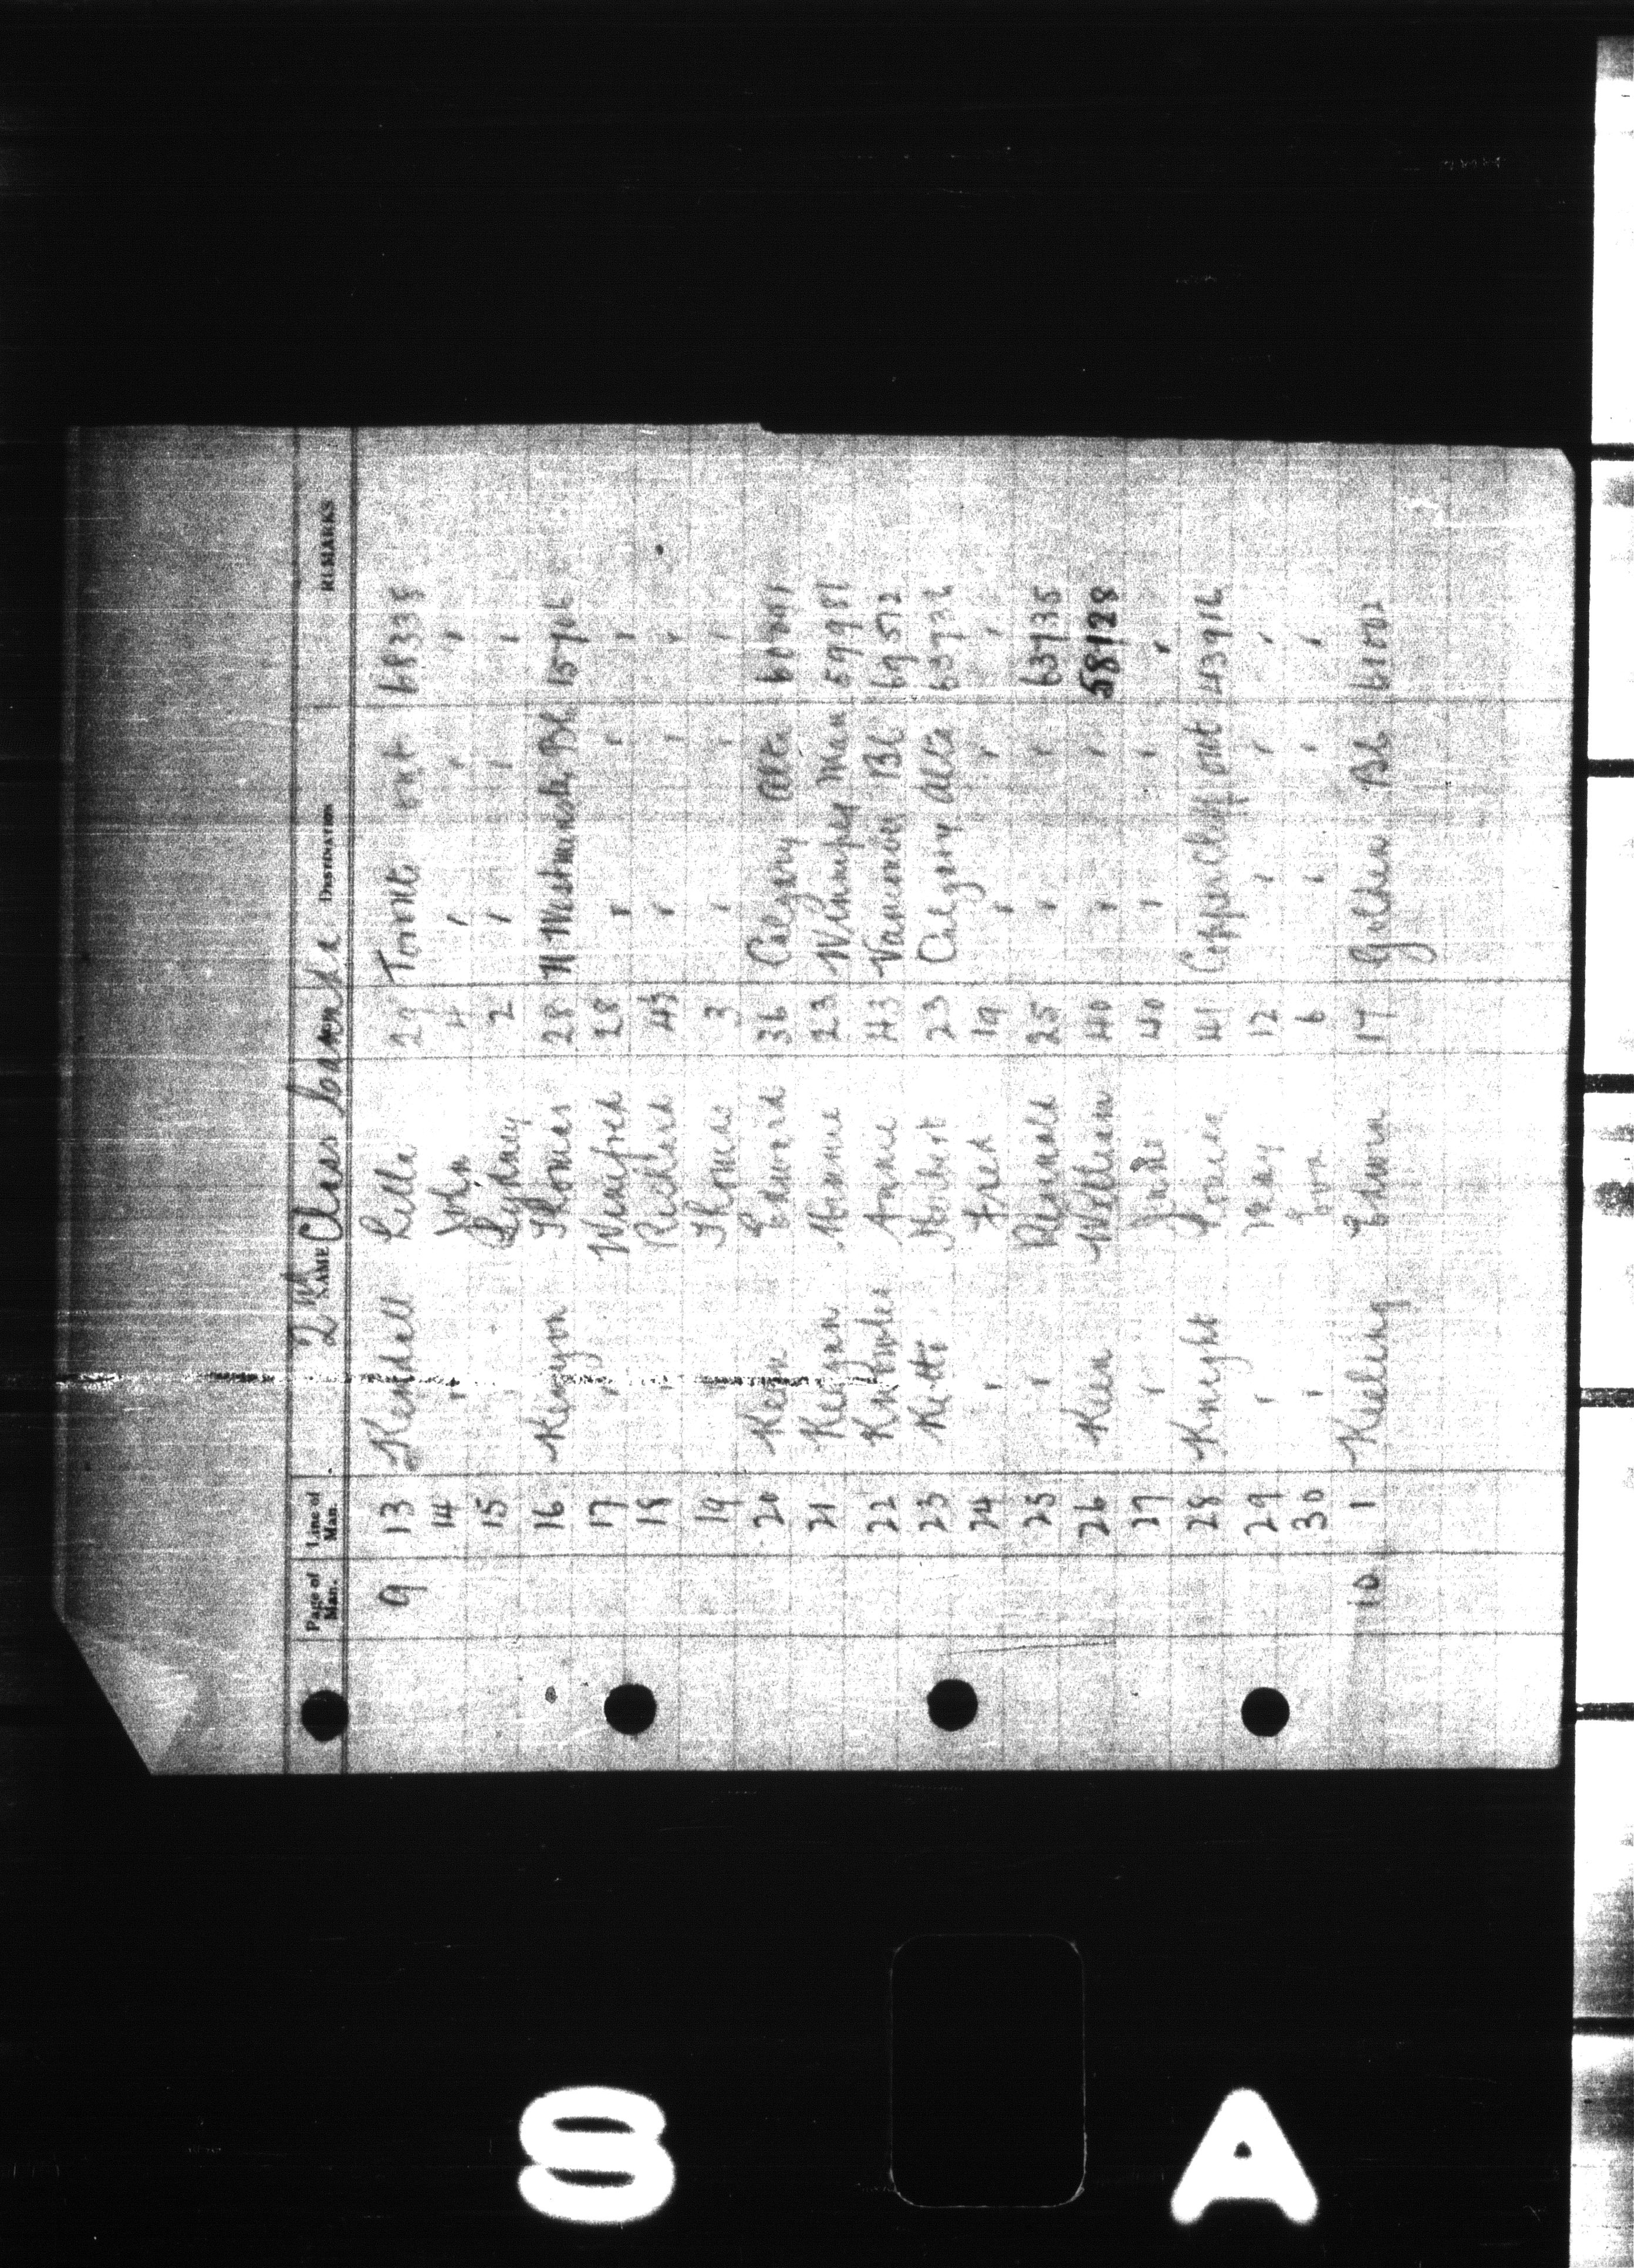 2nd Class Canada
Page of Man. Line of Man. NAME DESTINATION REMARKS
9 13 Kendall Lilla 29 Toronto Ont 68338
14 " John 4 " " "
15 Sydney 2 " " "
16 Kenyon Thomas 28 N Westminster BC 15716
17 " Winifred 28 " " "
18 " Richard 43 " " "
19 " Thomas 3 " " "
20 Keen Edward 36 Calgary Alta
21 Keegan 23 Winnipeg Man 59981
22 Knowles Annie 43 Vancouver BC 69512
23 Ketts Herbert 23 Calgary Alta 63736
24 " Fred 19 " " "
25 " Reginald 25 " " 63735
26 Keen William 40 " " 58128
27 " 40 " " "
28 Knight Louisa 41 Copper Cliff Ont 43916
29 " May 12 " " "
30 " 6 " " "
10 1 Keeling Edwin 17 Golden BC 61002
S A